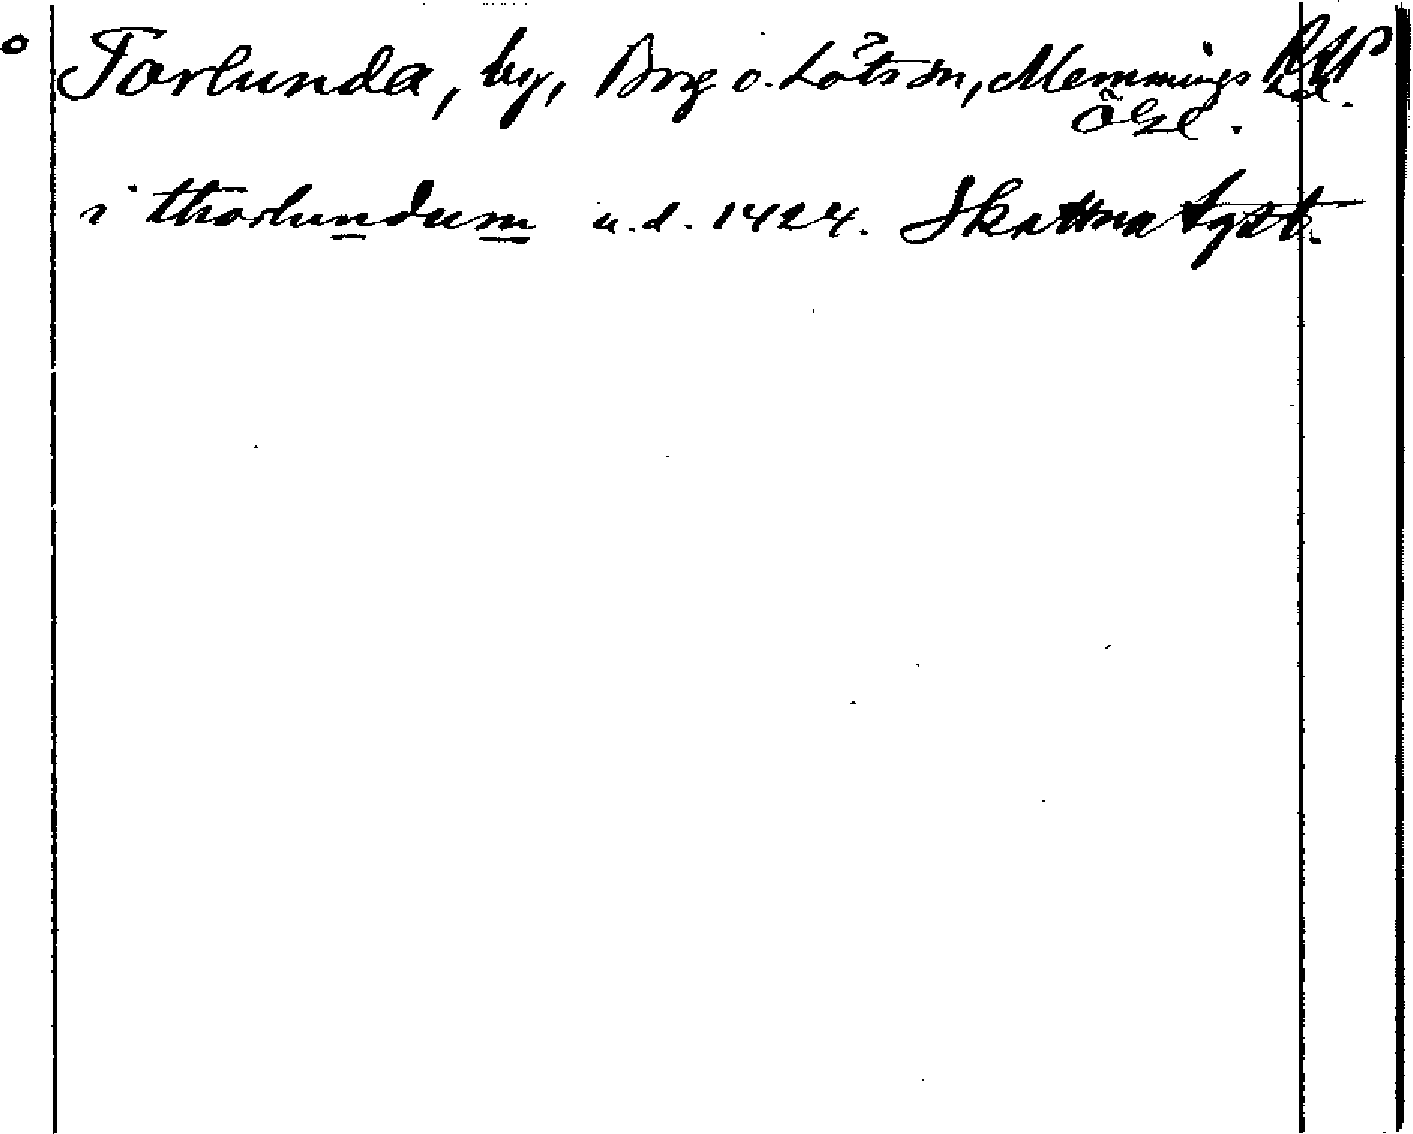 Torlunda, by, Borg o. Löts sn, Memmings hd.
Ögl.
i thorlundum u.d. 1424. Skattna Lgst.